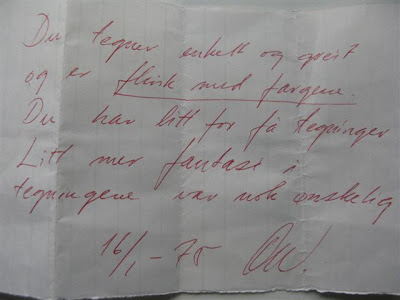 Du tegner enkelt og greit
og er flink med fargene.
Du har litt for få tegninger
Litt mer fantasi i
tegningene var nok ønskelig
16/1 - 75